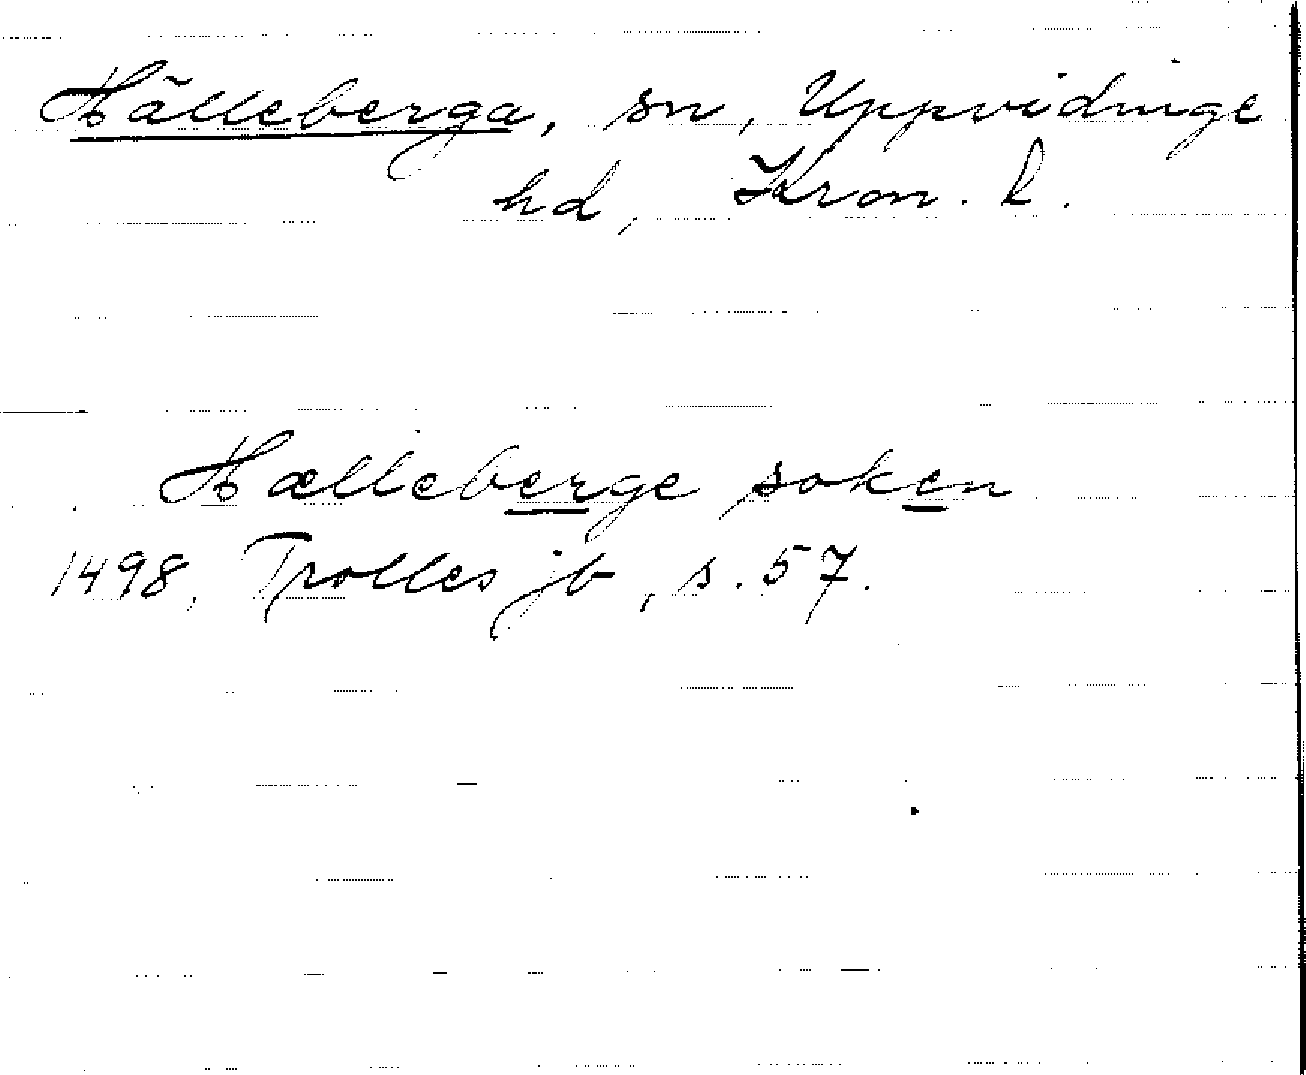 Hälleberga, sn, Uppvidinge
hd, Kron. l.
Hælleberge soken
1498, Trolles jb, s. 57.